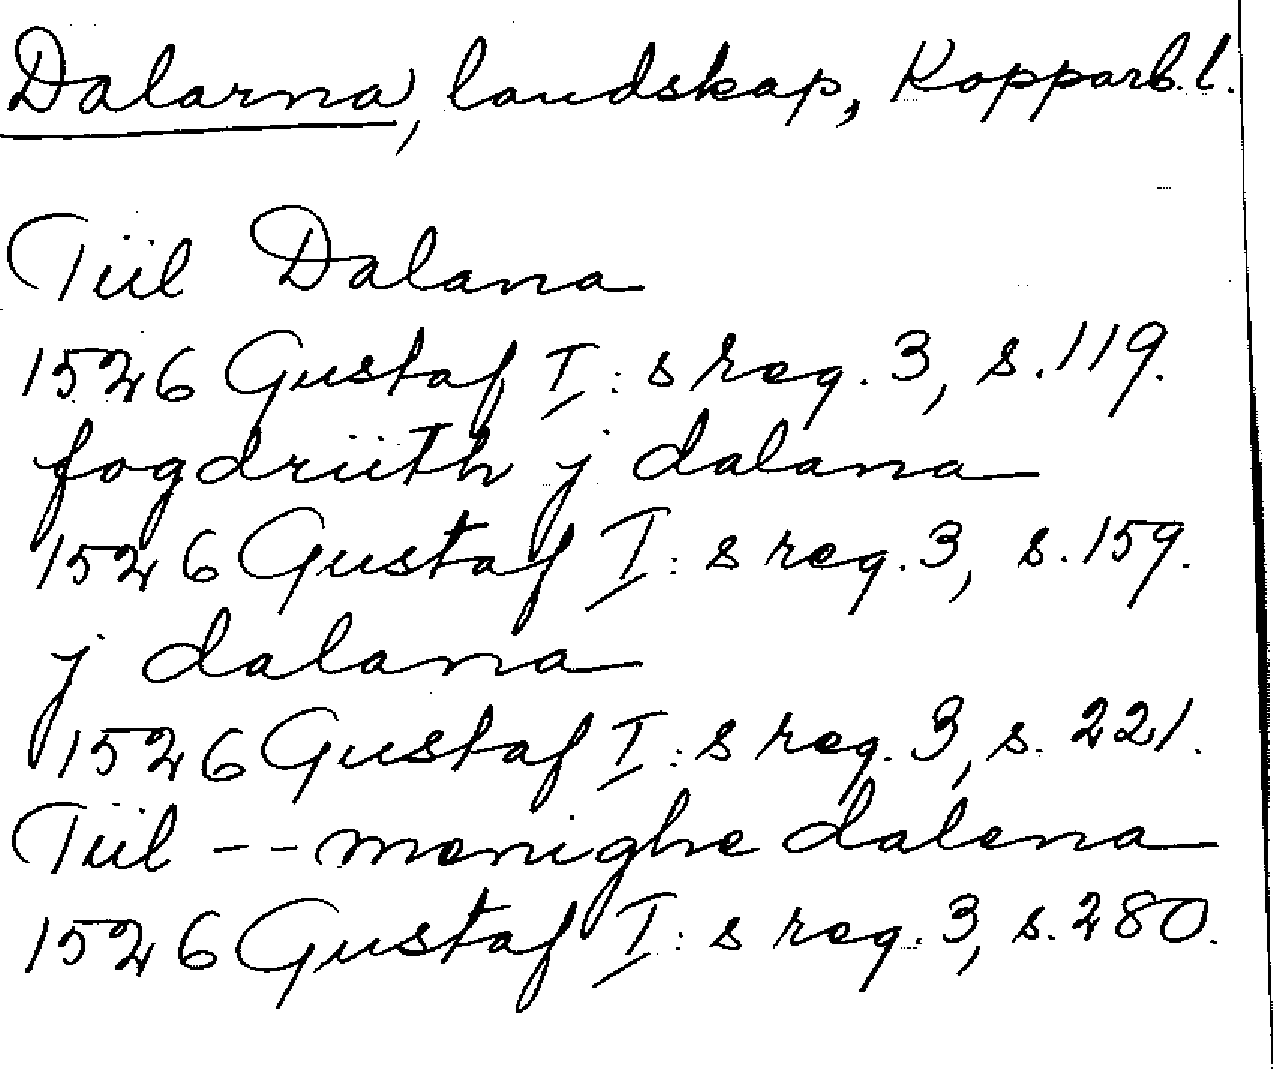 Dalarna, landskap, Kopparb.l.
Tiil Dalana
1526 Gustaf I:s reg. 3, s. 119.
fogdriith j dalana
1526 Gustaf I:s reg. 3, s. 159.
j dalana
1526 Gustaf I:s reg. 3, s. 221.
Tiil -- menighe dalena
1526 Gustaf I:s reg. 3, s. 280.